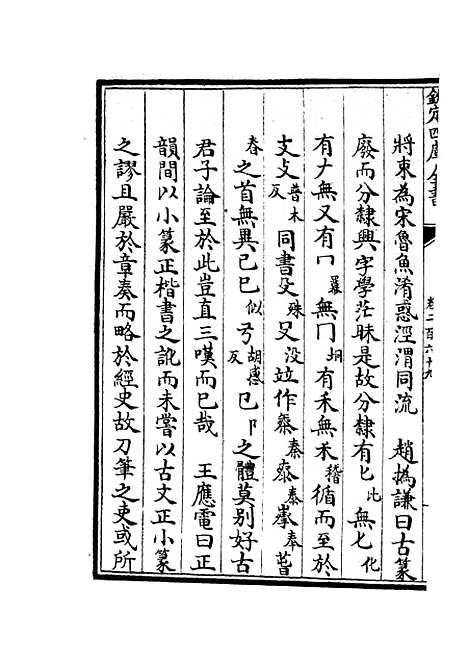 欽定四庫全書
卷二百六十九
將東為宋魯魚淆惑涇渭同流　趙撝謙曰古篆
廢而分隸興字學茫昧是故分隸有匕比無𠤎化
有𠂇無又有冖羃無冂坰有禾無𥝌稽循而至於
支攴普木反同書殳殊𠬛没竝作㮤秦㮤泰𡴀奉萅
春之首無異已巳似𢎘胡感反㔾卩之體莫别好古
君子論至於此豈直三嘆而已哉　王應電曰正
韻間以小篆正楷書之訛而未嘗以古文正小篆
之謬且嚴於章奏而略於經史故刀筆之吏或所